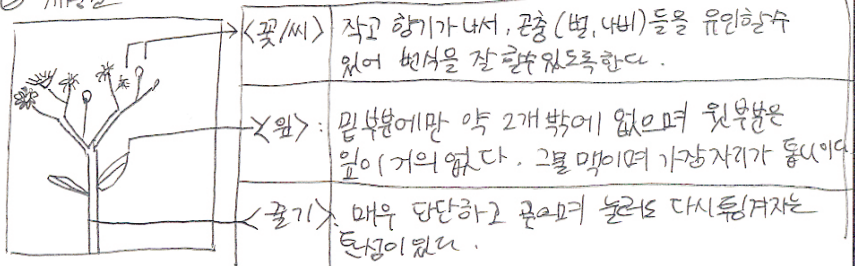 <꽃/씨> 작고 향기가 나서, 곤충(벌,나비)들을 유인할 수
있어 번식을 잘 할 수 있도록 한다.
<잎>: 밑부분에만 약 2개 밖에 없으며 윗부분은
잎이 거의 없다. 그물맥이며 가장자리가 톱니이다
<줄기>: 매우 단단하고 곧으며 눌러도 다시 튕겨지는
탄성이 있다.